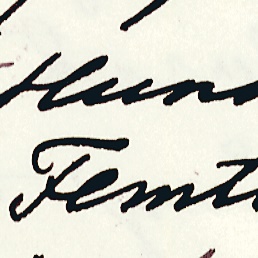 Hun
Femt